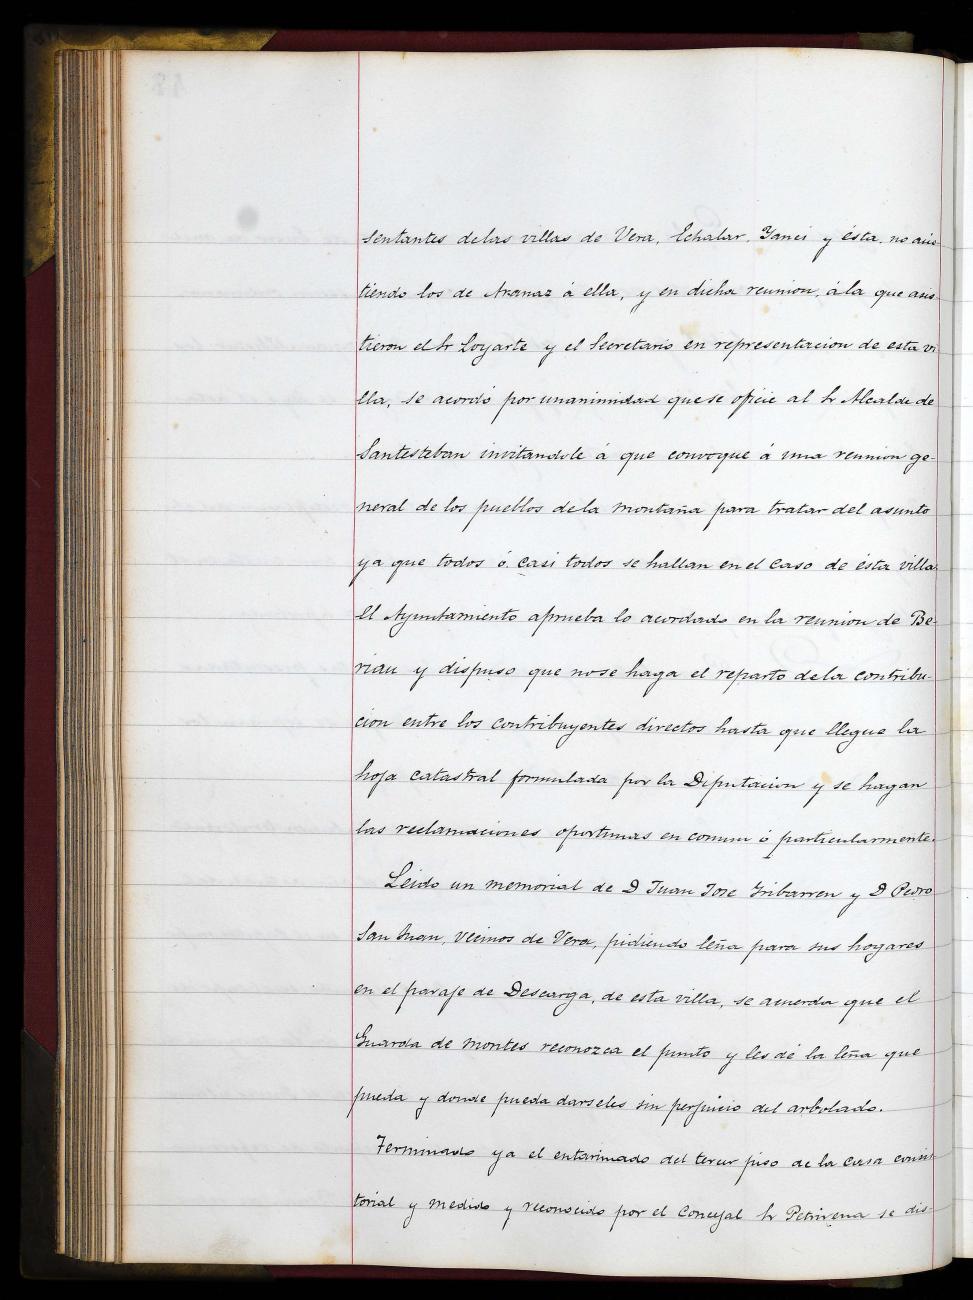 sentantes de las villas de Vera, Echalar, Yanci y ésta, no asis-
tiendo los de Aranaz á ella, y en dicha reunion, á la que asis-
tieron el Sr Loyarte y el Secretario en representacion de esta vi
lla, se acordó por unanimidad que se oficie al Sr Alcalde de
Santesteban invitandole á que convoque á una reunion ge-
neral de los pueblos de la montaña para tratar del asunto
ya que todos ó casi todos se hallan en el caso de ésta villa.
El Ayuntamiento aprueba lo acordado en la reunion de Be-
riau y dispuso que no se haga el reparto de la contribu-
cion entre los contribuyentes directos hasta que llegue la
hoja catastral formulada por la Diputacion y se hagan
las reclamaciones oportunas en comun ó particularmente.
Leido un memorial de D Juan José Iribarren y D Pedro
San Juan, vecinos de Vera, pidiendo leña para sus hogares
en el paraje de Descarga, de esta villa, se acuerda que el
Guarda de montes reconozca el punto y les dé la leña que
pueda y donde pueda darseles sin perjuicio del arbolado.
Terminado ya el entarimado del tercer piso de la casa consis
torial y medido y reconocido por el Concejal Sr Petrirena se dis-